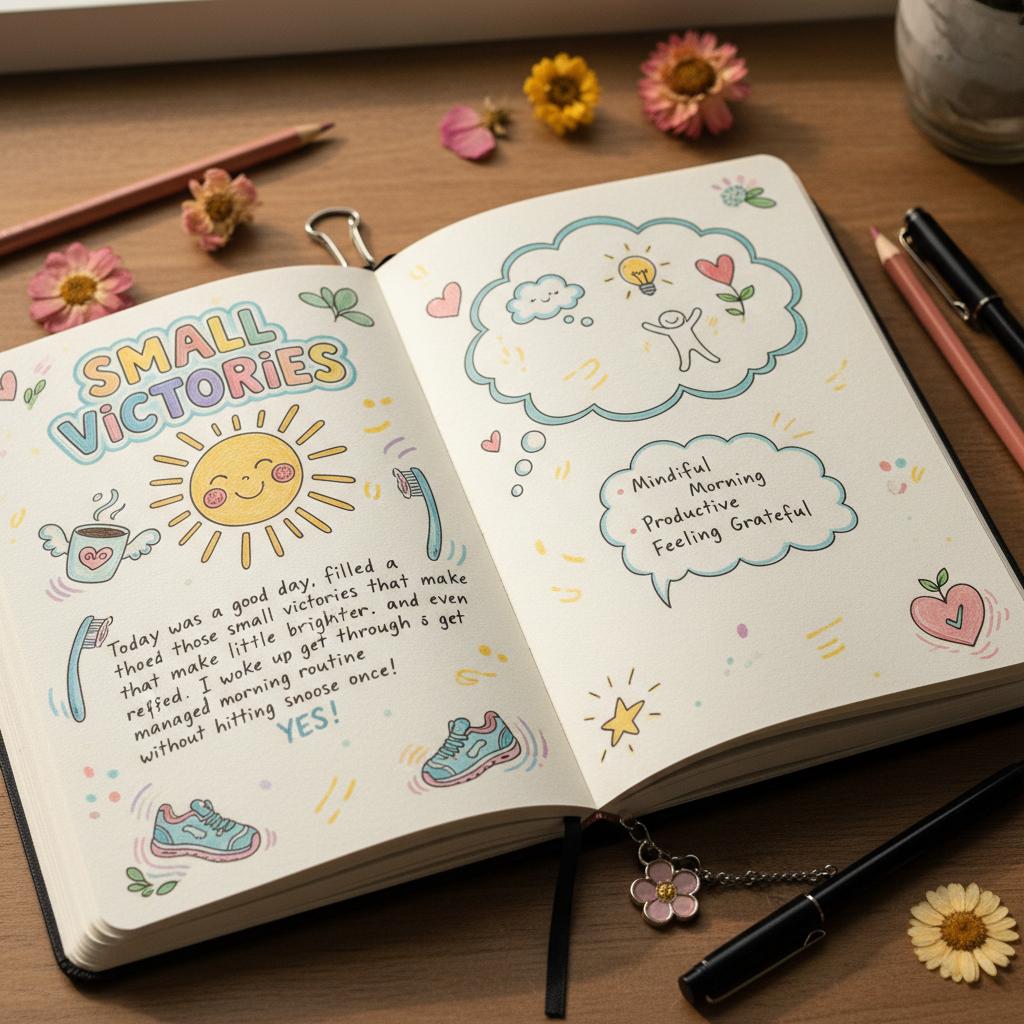 SMALL
VICTORIES
Today was a good day, filled a
thoed those small victories that make
that make little brighter. and even
reffed. I woke up get through & get
managed morning routine
without hitting snoose once!
YES!
Mindiful
Morning
Productive
Feeling Grateful